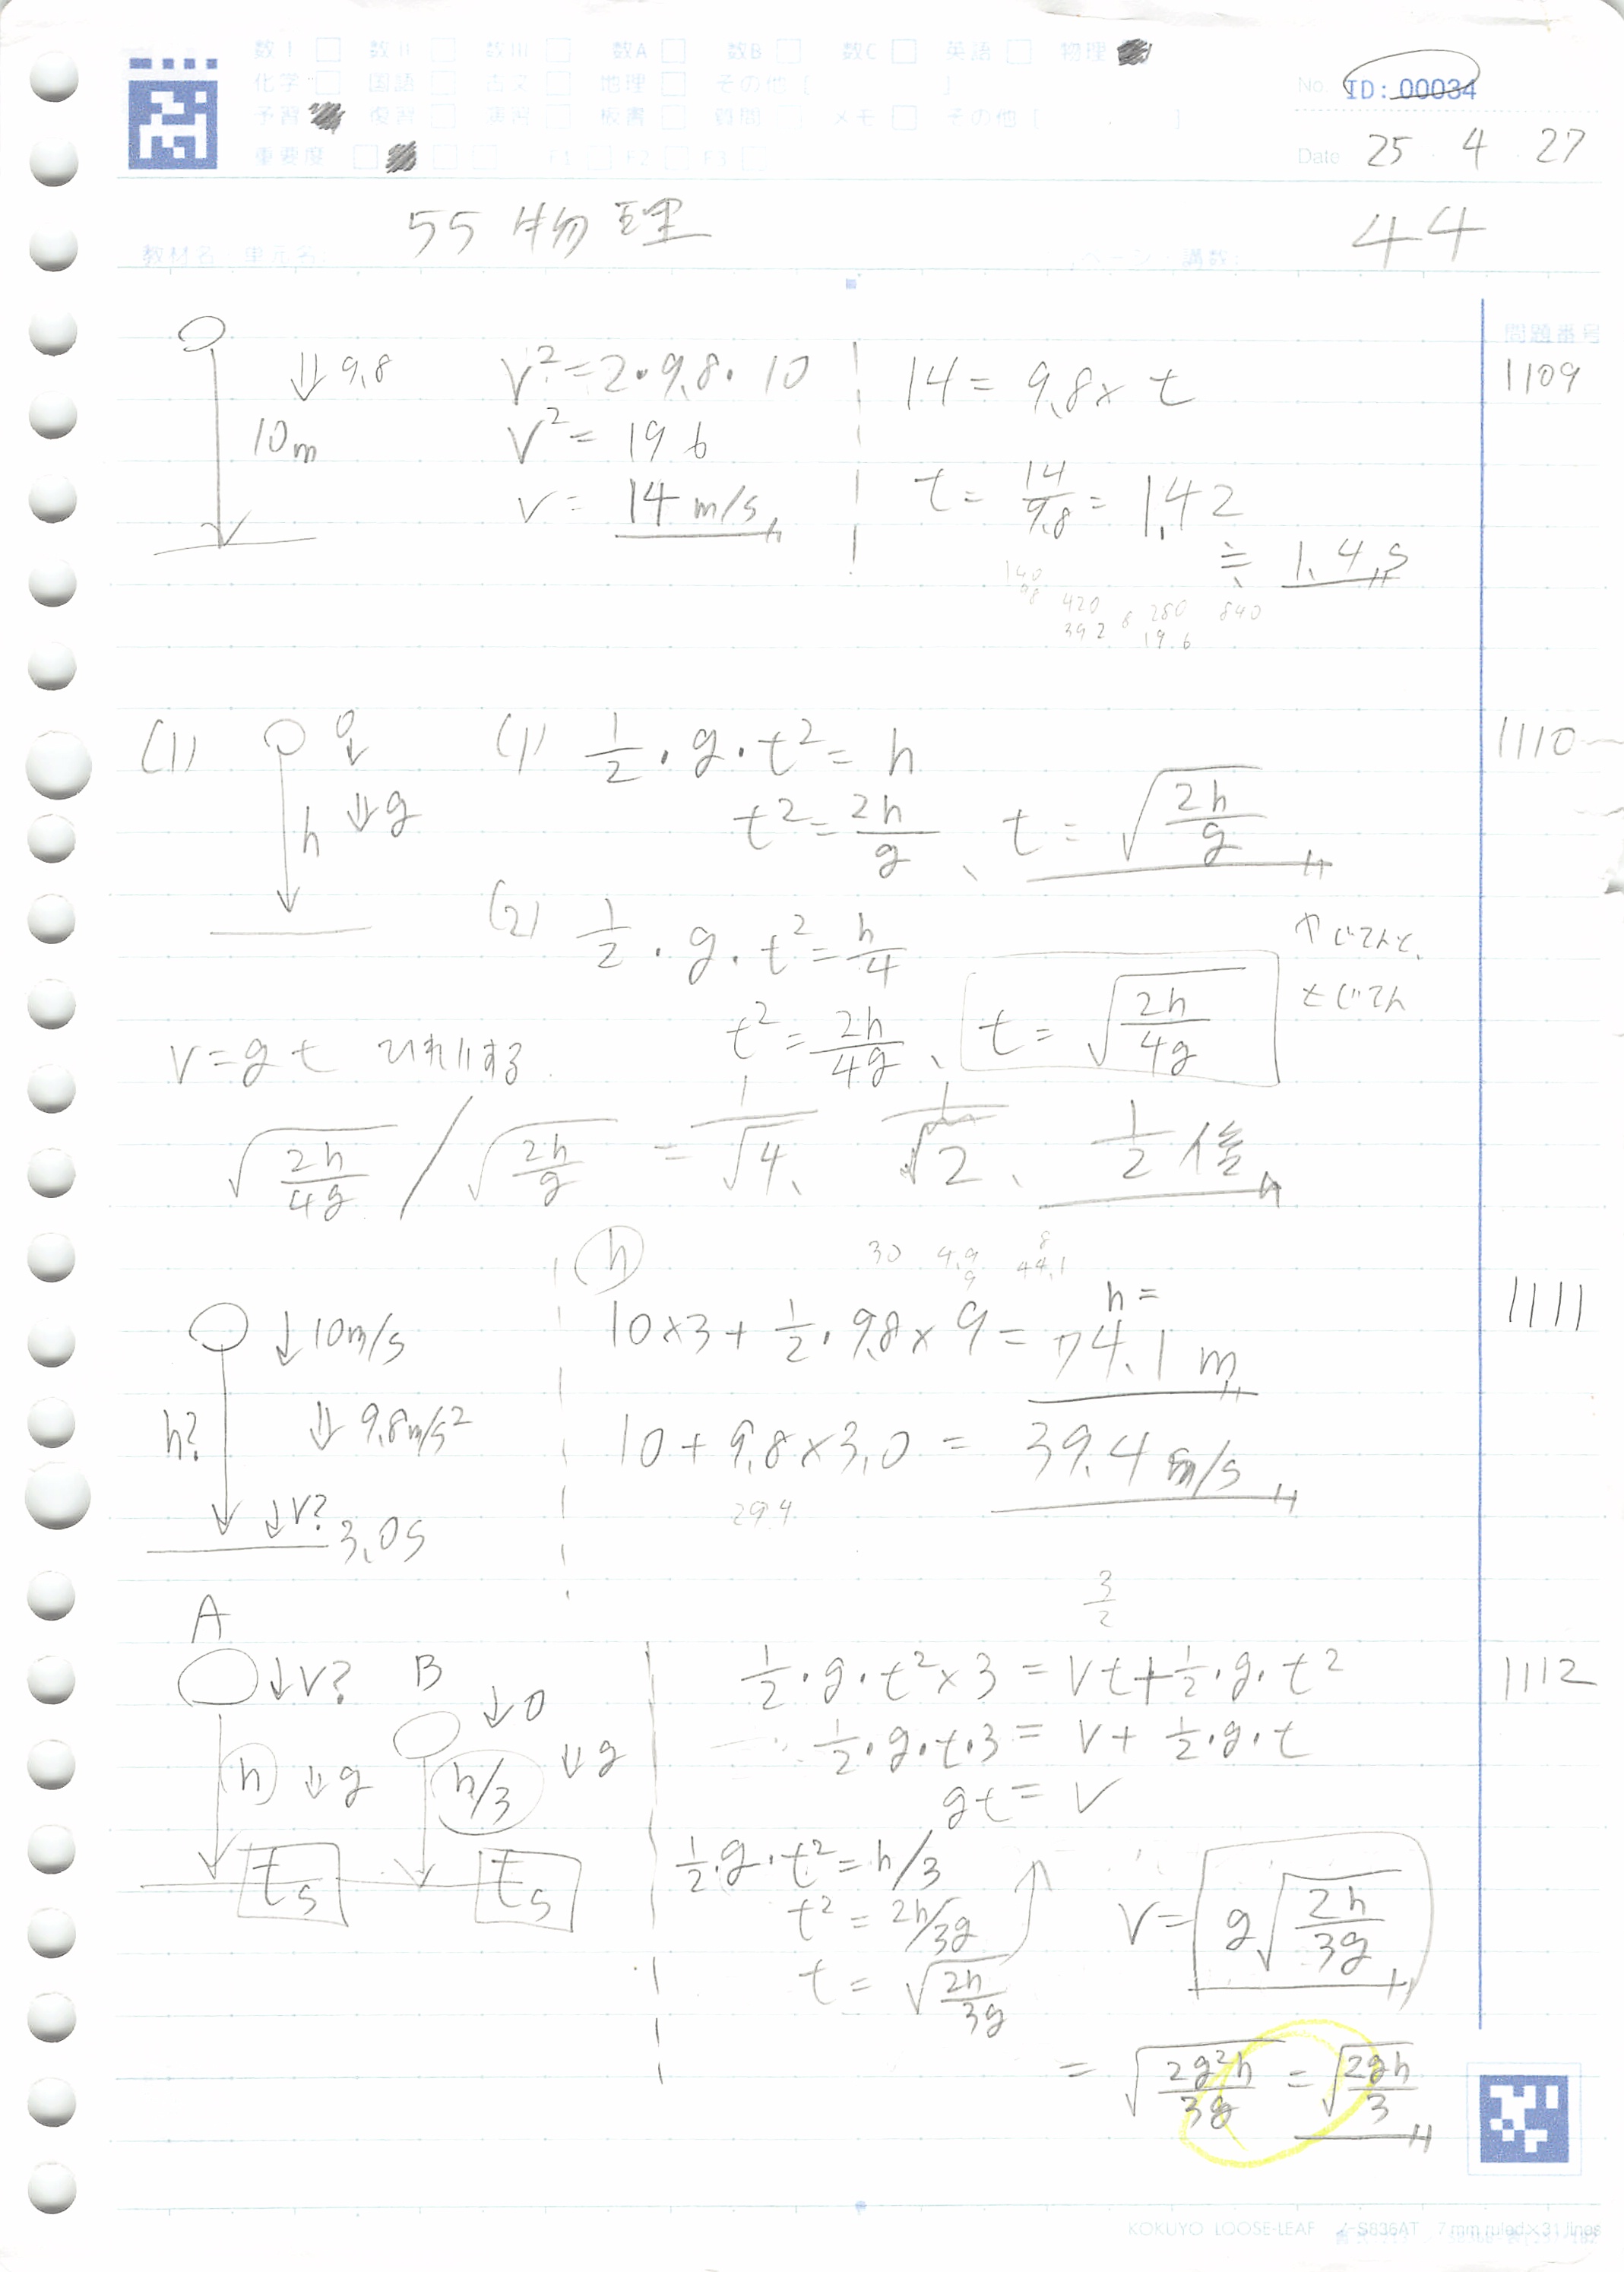 数I 数II 数III 数A 数B 数C 英語 物理
化学 国語 古文 地理 その他 [ ]
予習 復習 演習 板書 質問 メモ その他 [ ]
重要度 F1 F2 F3
No. ID: 00034
Date 25・4・27
教材名・単元名: 55 物理
講数: 44
問題番号
1109
↓9.8
10m
V²=2・9.8・10
V²=196
V= 14 m/s
14=9.8×t
t=14/9.8=1.42
≒1.4s
140
98
420
392
280
19.6
840
1110
(1)
0
h ⇓g
(1) 1/2・g・t²=h
t²=2h/g、t=√(2h/g)
(2) 1/2・g・t²=h/4
t²=2h/4g、t=√(2h/4g)
V=gt
√(2h/4g) / √(2h/g) = 1/√4、 1/2 倍
1111
h
30 4.9 9 8 44.1
↓10m/s
h? ⇓9.8m/s²
↓V? 3.0s
h=
10×3+1/2・9.8×9=74.1m
10+9.8×3.0=39.4m/s
29.4
3/2
1112
A ↓V?
B ↓0
h ⇓g
h/3 ⇓g
ts ts
1/2・g・t²×3=Vt+1/2・g・t²
1/2・g・t・3=V+1/2・g・t
gt=V
1/2・g・t²=h/3
t²=2h/3g
t=√(2h/3g)
V=g√(2h/3g)
=√(2g²h/3g)=√(2gh/3)
KOKUYO LOOSE-LEAF ノ-S836AT 7 mm ruled×31 lines